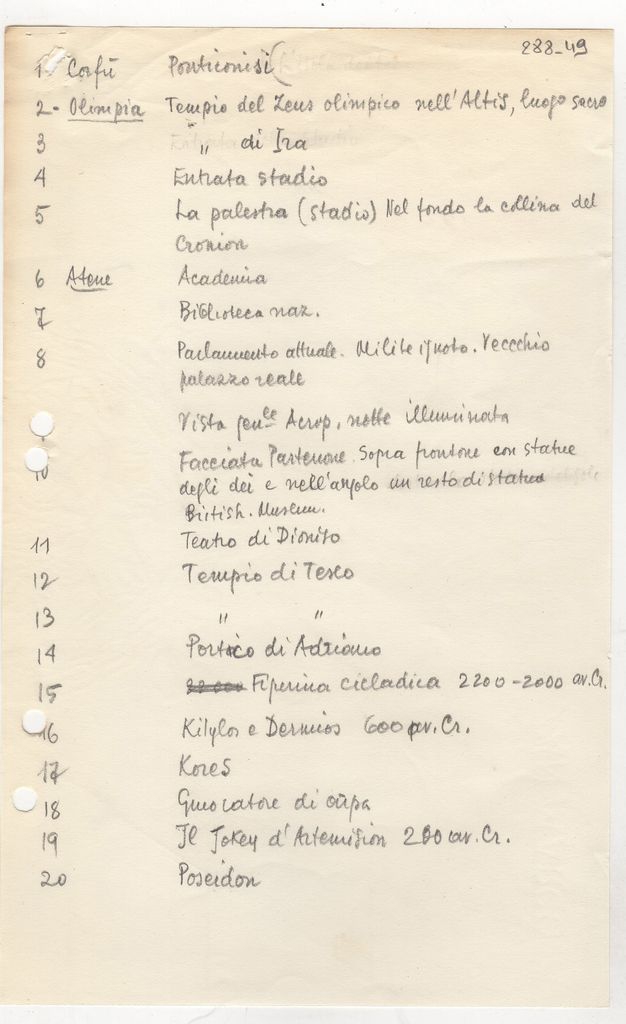 288-49
1 Corfù Ponticonisi (
2- Olimpia Tempio del Zeus olimpico nell'Altis, luogo sacro
3 " di Ira
4 Entrata stadio
5 La palestra (stadio) Nel fondo la collina del
Cronion
6 Atene Academia
7 Biblioteca naz.
8 Parlamento attuale. Milite ignoto. Veccchio
palazzo reale
Vista genle Acrop. notte illuminata
10 Facciata Partenone. Sopra frontone con statue
degli dei e nell'angolo un resto di statua
British. Museum.
11 Teatro di Dioniso
12 Tempio di Teseo
13 " "
14 Portico di Adriano
15 Figurina cicladica 2200-2000 av.Cr.
16 Kitylos e Dermios 600 av.Cr.
17 Kores
18 Giuocatore di
19 Il Jokey d'Artemision 200 av.Cr.
20 Poseidon